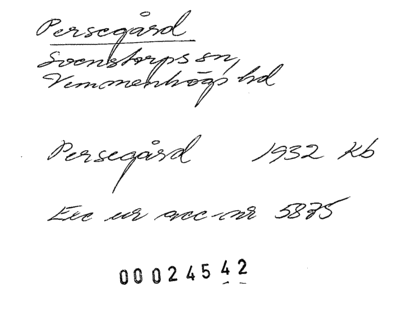 Persegård
Svenstorps sn,
Vemmenhögs hd
Persegård 1932 Kb
Exc ur acc-nr 5875
00024542